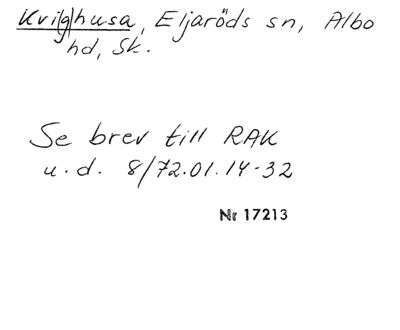 Kvi(g)husa, Eljaröds sn, Albo
hd, Sk.
Se brev till RAK
u.d. 8/72.01.14-32
Nr 17213